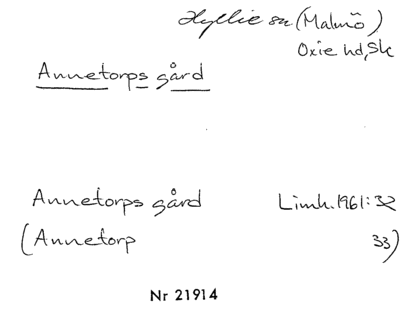 Hyllie sn (Malmö)
Oxie hd, Sk
Annetorps gård
Annetorps gård Limh. 1961: 32
(Annetorp 33)
Nr 21914